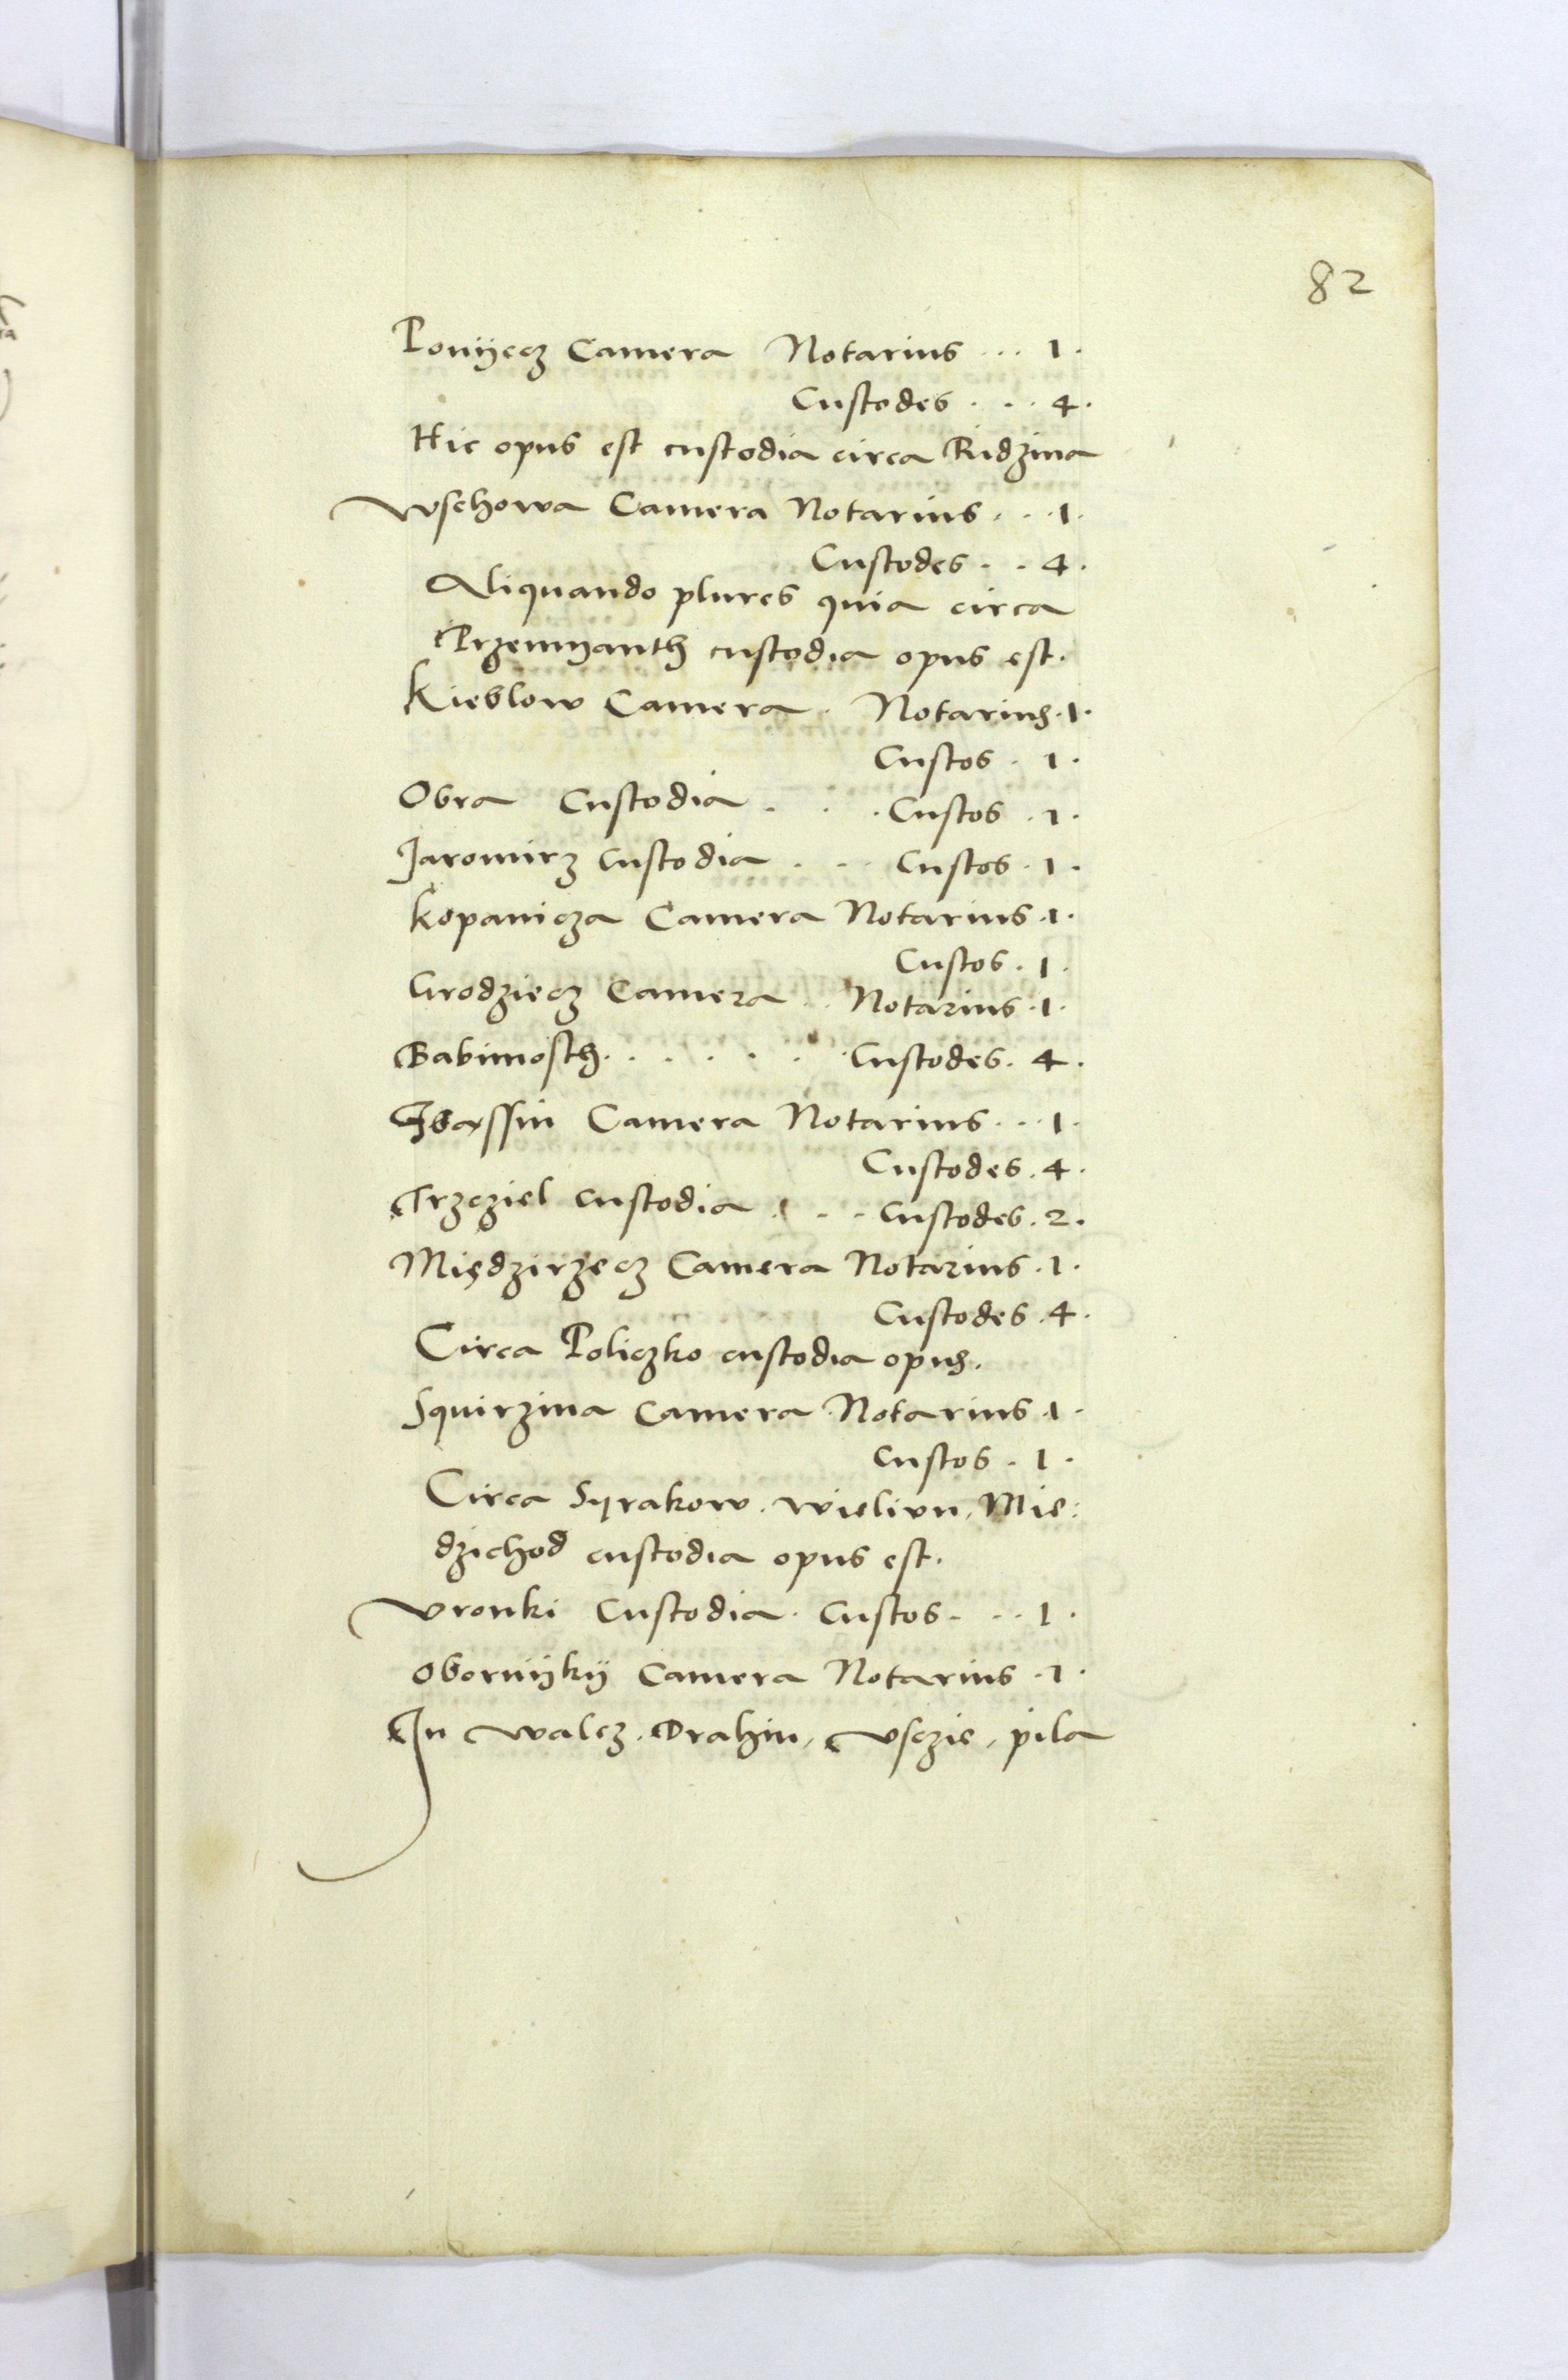 82
Poniiecz Camera Notarius ... 1.
Custodes ... 4.
Hic opus est custodia circa Ridzina
Wschowa Camera Notarius ... 1.
Custodes .. 4.
Aliquando plures quia circa
Przemyanth custodia opus est.
Kieblow Camera. Notarius .1.
Custos . 1.
Obra Custodia . . . Custos . 1.
Jaromirz Custodia ... Custos . 1.
Kopanicza Camera Notarius .1.
Custos . 1.
Grodziecz Camera .. Notarius .1.
Babimosth. . . . . . Custodes. 4.
Sbassin Camera Notarius ... 1.
Custodes . 4.
Trzcziel custodia . . . Custodes . 2.
Międzirzecz Camera Notarius .1.
Custodes . 4.
Circa Policzko custodia opus.
Squirzina Camera Notarius .1.
Custos . 1.
Circa Syrakow. Wielivn, Mie:
dzichod custodia opus est.
Vronki Custodia. Custos ... 1.
Obornijkij Camera Notarius .1.
In Walcz. Drahin, Vsczie, pila